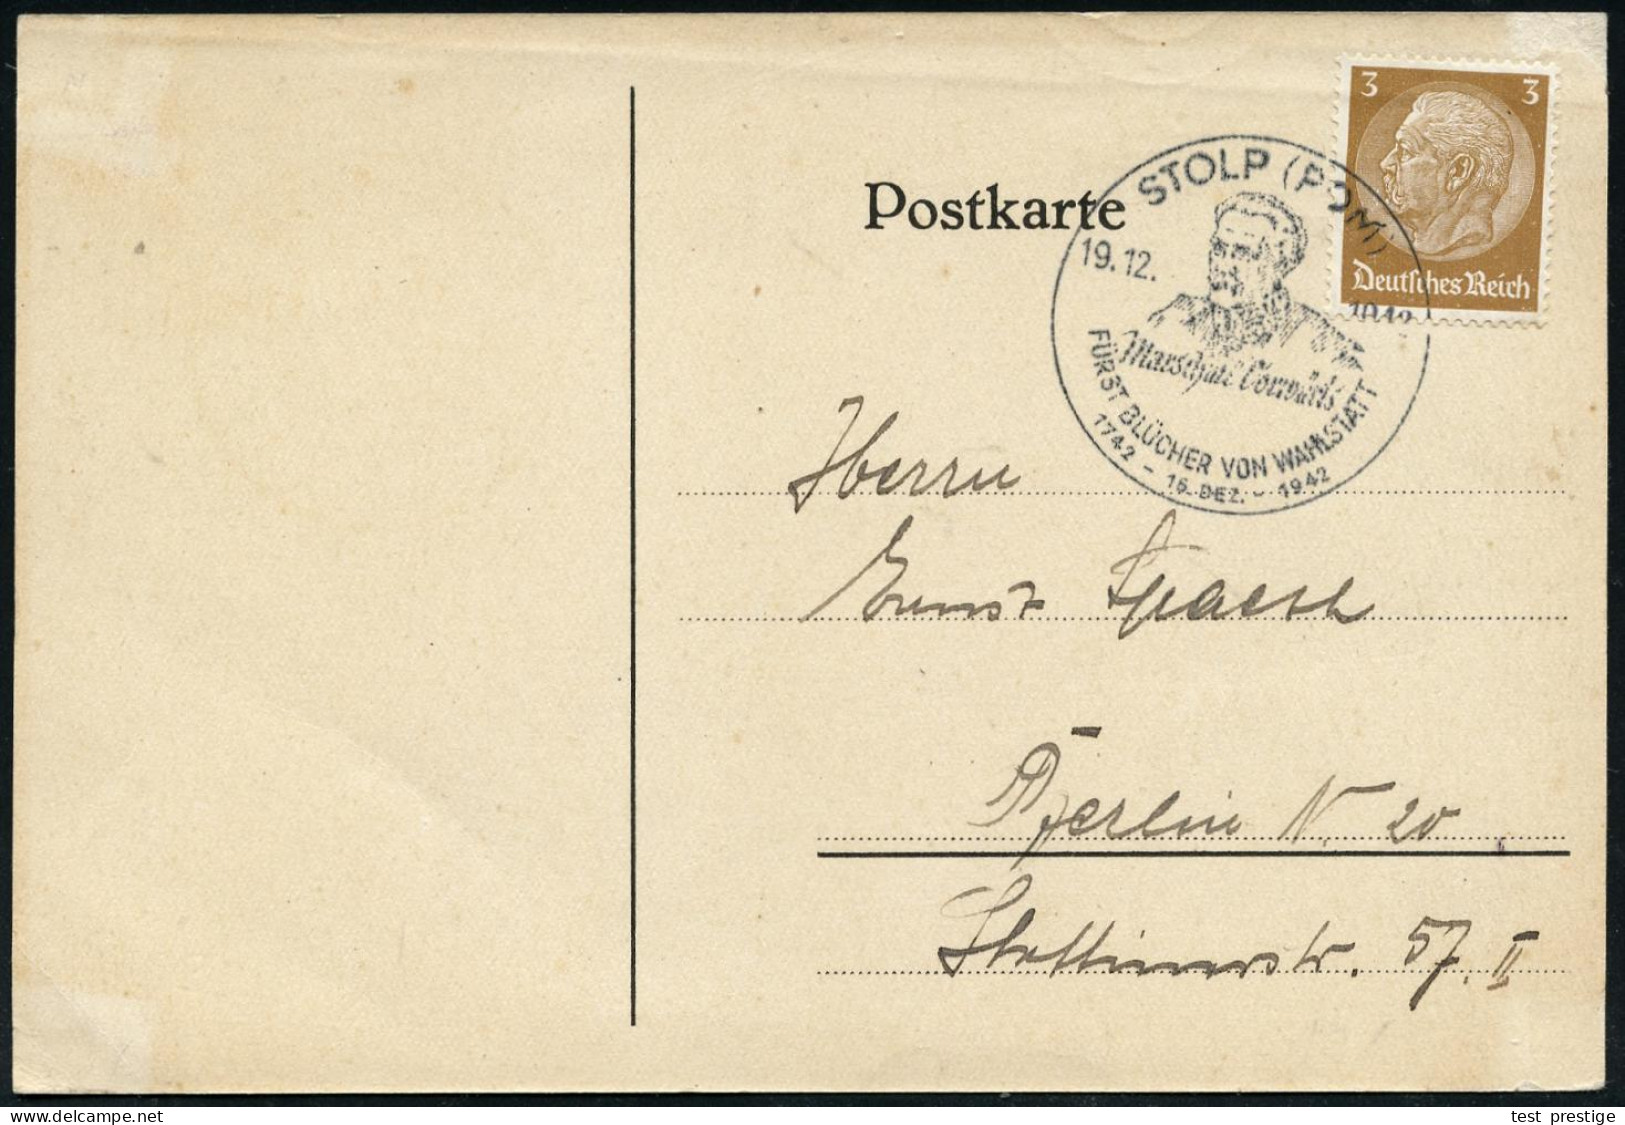 3 3
Deutsches Reich
STOLP (POM)
Postkarte
19.12. 1942
Marschall Vorwärts
FÜRST BLÜCHER VON WAHLSTATT
1742 - 16. DEZ. - 1942
Herrn
Ernst Spaeth
Berlin N. 20
Stettinerstr. 57. II
www.delcampe.net
test_prestige